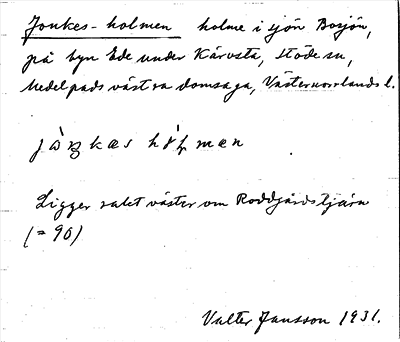 Jonkes-holmen holme i sjön Bosjön,
på byn Ede under Kärvsta, Stöde sn,
Medelpads västra domsaga, Västernorrlands l.
hòl̥mæn
Ligger rakt väster om Roddgårdstjärn
(= 90)
Valter Jansson 1931.